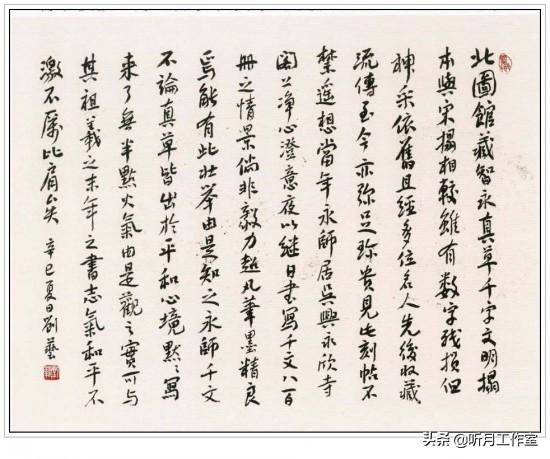 北圖館藏智永真草千字文明搨
本與宋搨相較雖有数字殘損但
神采依舊且經多位名人先後收藏
流傳至今亦弥足珍貴見此刻帖不
禁遥想當年永師居吳興永欣寺
閣上淨心澄意夜以继日書寫千文八百
册之情景倘非毅力超凡筆墨精良
焉能有此壮举由是知之永師千文
不論真草皆出於平和心境默々寫
来了無半點火氣由是觀之實可与
其祖羲之末年之書志氣和平不
激不厲比肩矣 辛巳夏日劉藝
头条@听月工作室